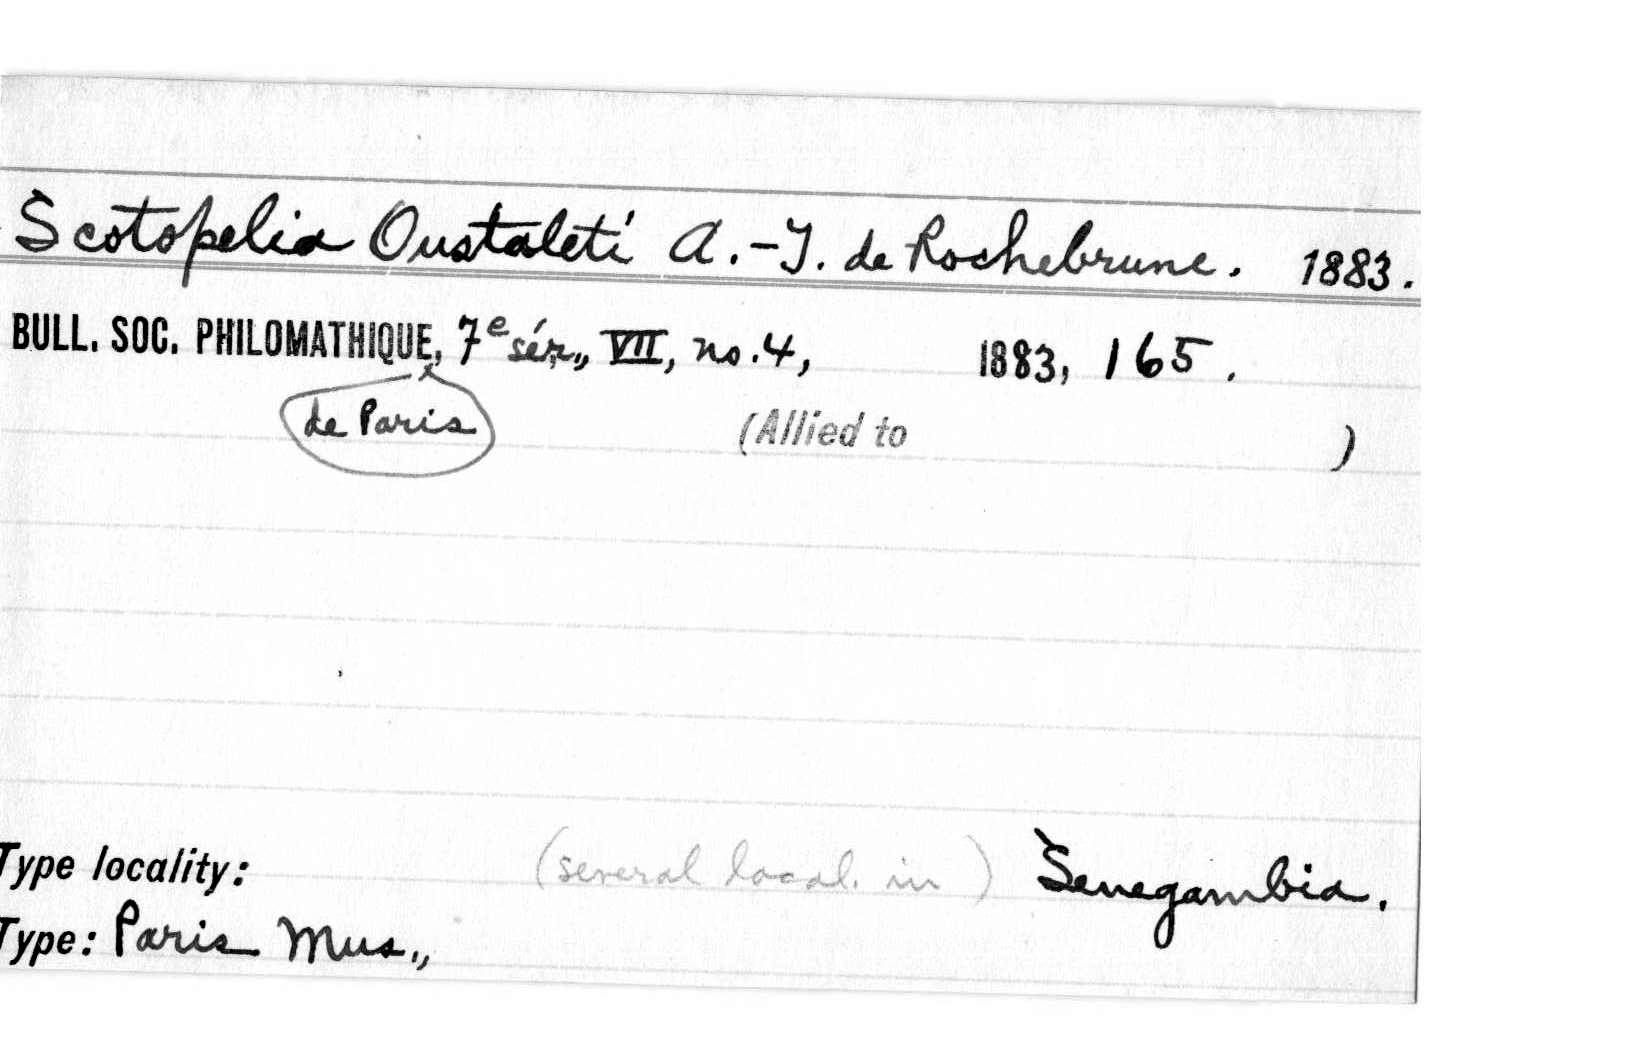 Scotopelia Oustaleti A.-T. de Rochebrune. 1883.
BULL. SOC. PHILOMATHIQUE, 7e sér., VII, no. 4, 1883, 165.
de Paris
(Allied to )
(several local. in) Senegambia.
Type locality:
Type: Paris Mus.,